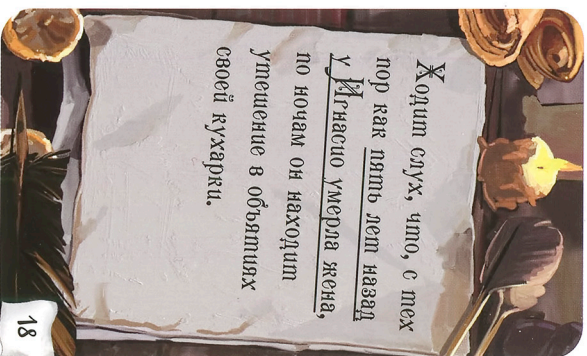 Ходит слух, что, с тех
пор как пять лет назад
у Игнасио умерла жена,
по ночам он находит
утешение в объятиях
своей кухарки.
18